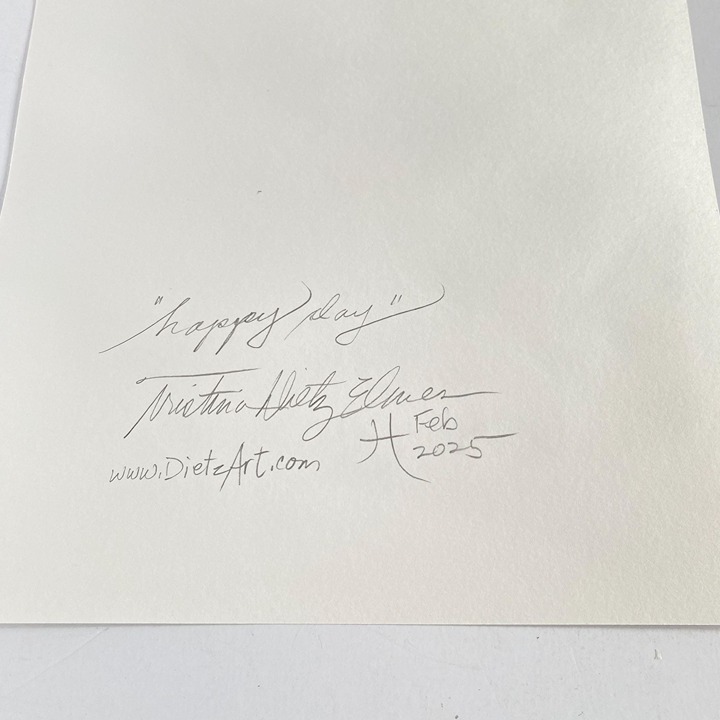 "happy day"
Kristina Dietz Elmes
Feb
www.DietzArt.com
2025